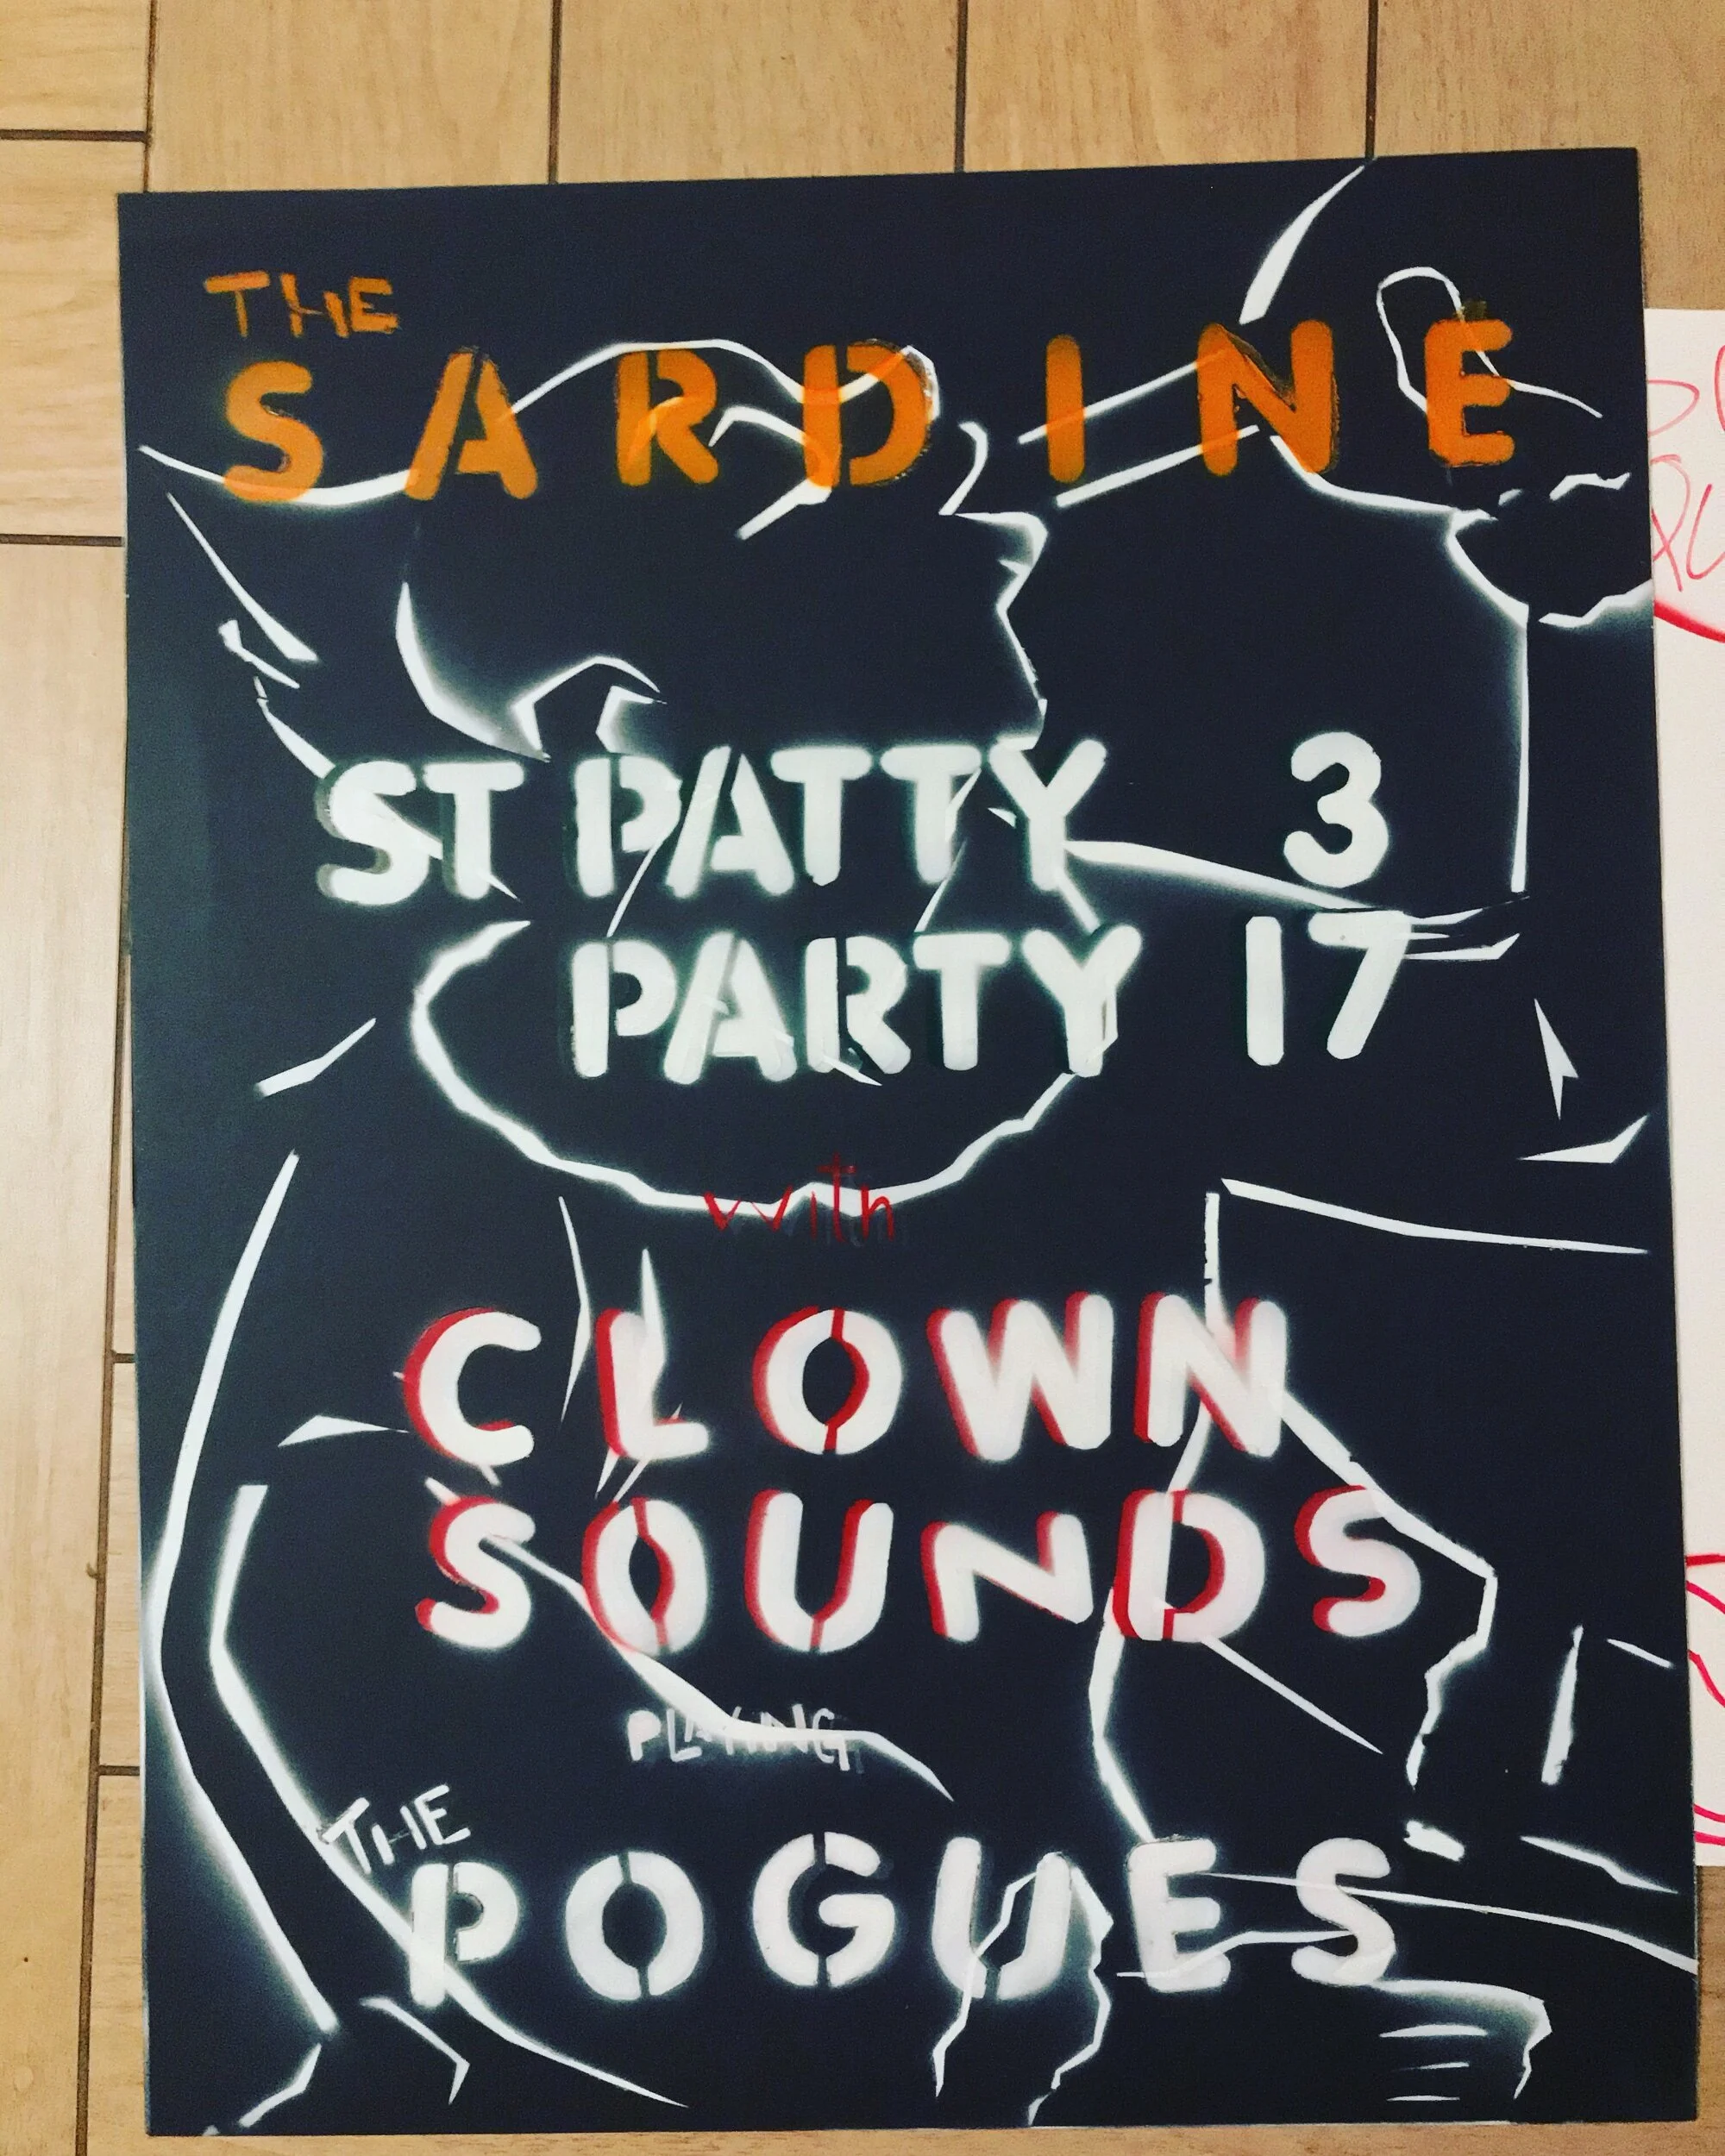 THE
SARDINE
ST PATTY 3
PARTY 17
with
CLOWN
SOUNDS
PLAYING
THE
POGUES